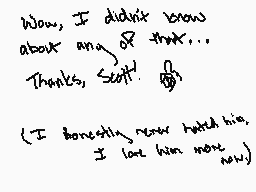 Wow, I didn't know
about any of that...
Thanks, Scott!
(I honestly never hated him,
I love him more
now.)